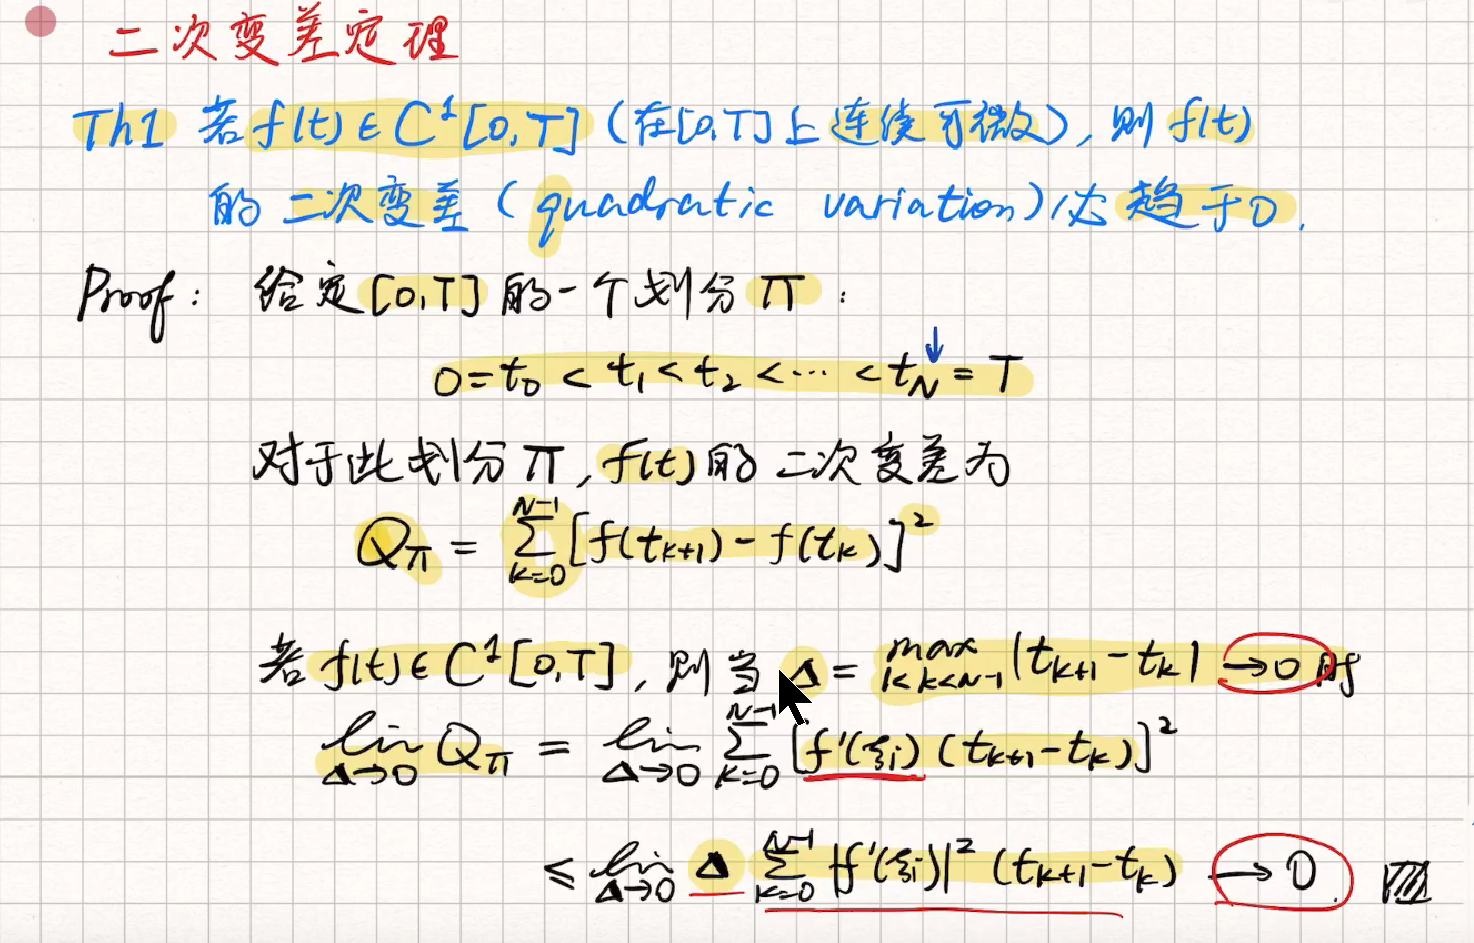 二次变差定理
Th1 若 f(t) ∈ C¹[0,T] (在[0,T]上连续可微), 则 f(t)
的二次变差 (quadratic variation) 必趋于0.
Proof: 给定[0,T]的一个划分 π :
0=t₀ < t₁ < t₂ < ⋯ < t_N = T
对于此划分 π, f(t) 的二次变差为
Q_π = ∑_{k=0}^{N-1} [f(t_{k+1}) - f(t_k)]²
若 f(t) ∈ C¹[0,T], 则当 Δ = max_{1<k<N-1} |t_{k+1} - t_k| →0 时
lim_{Δ→0} Q_π = lim_{Δ→0} ∑_{k=0}^{N-1} [f'(ξ_i) (t_{k+1} - t_k)]²
≤ lim_{Δ→0} Δ ∑_{k=0}^{N-1} |f'(ξ_i)|² (t_{k+1} - t_k) → 0